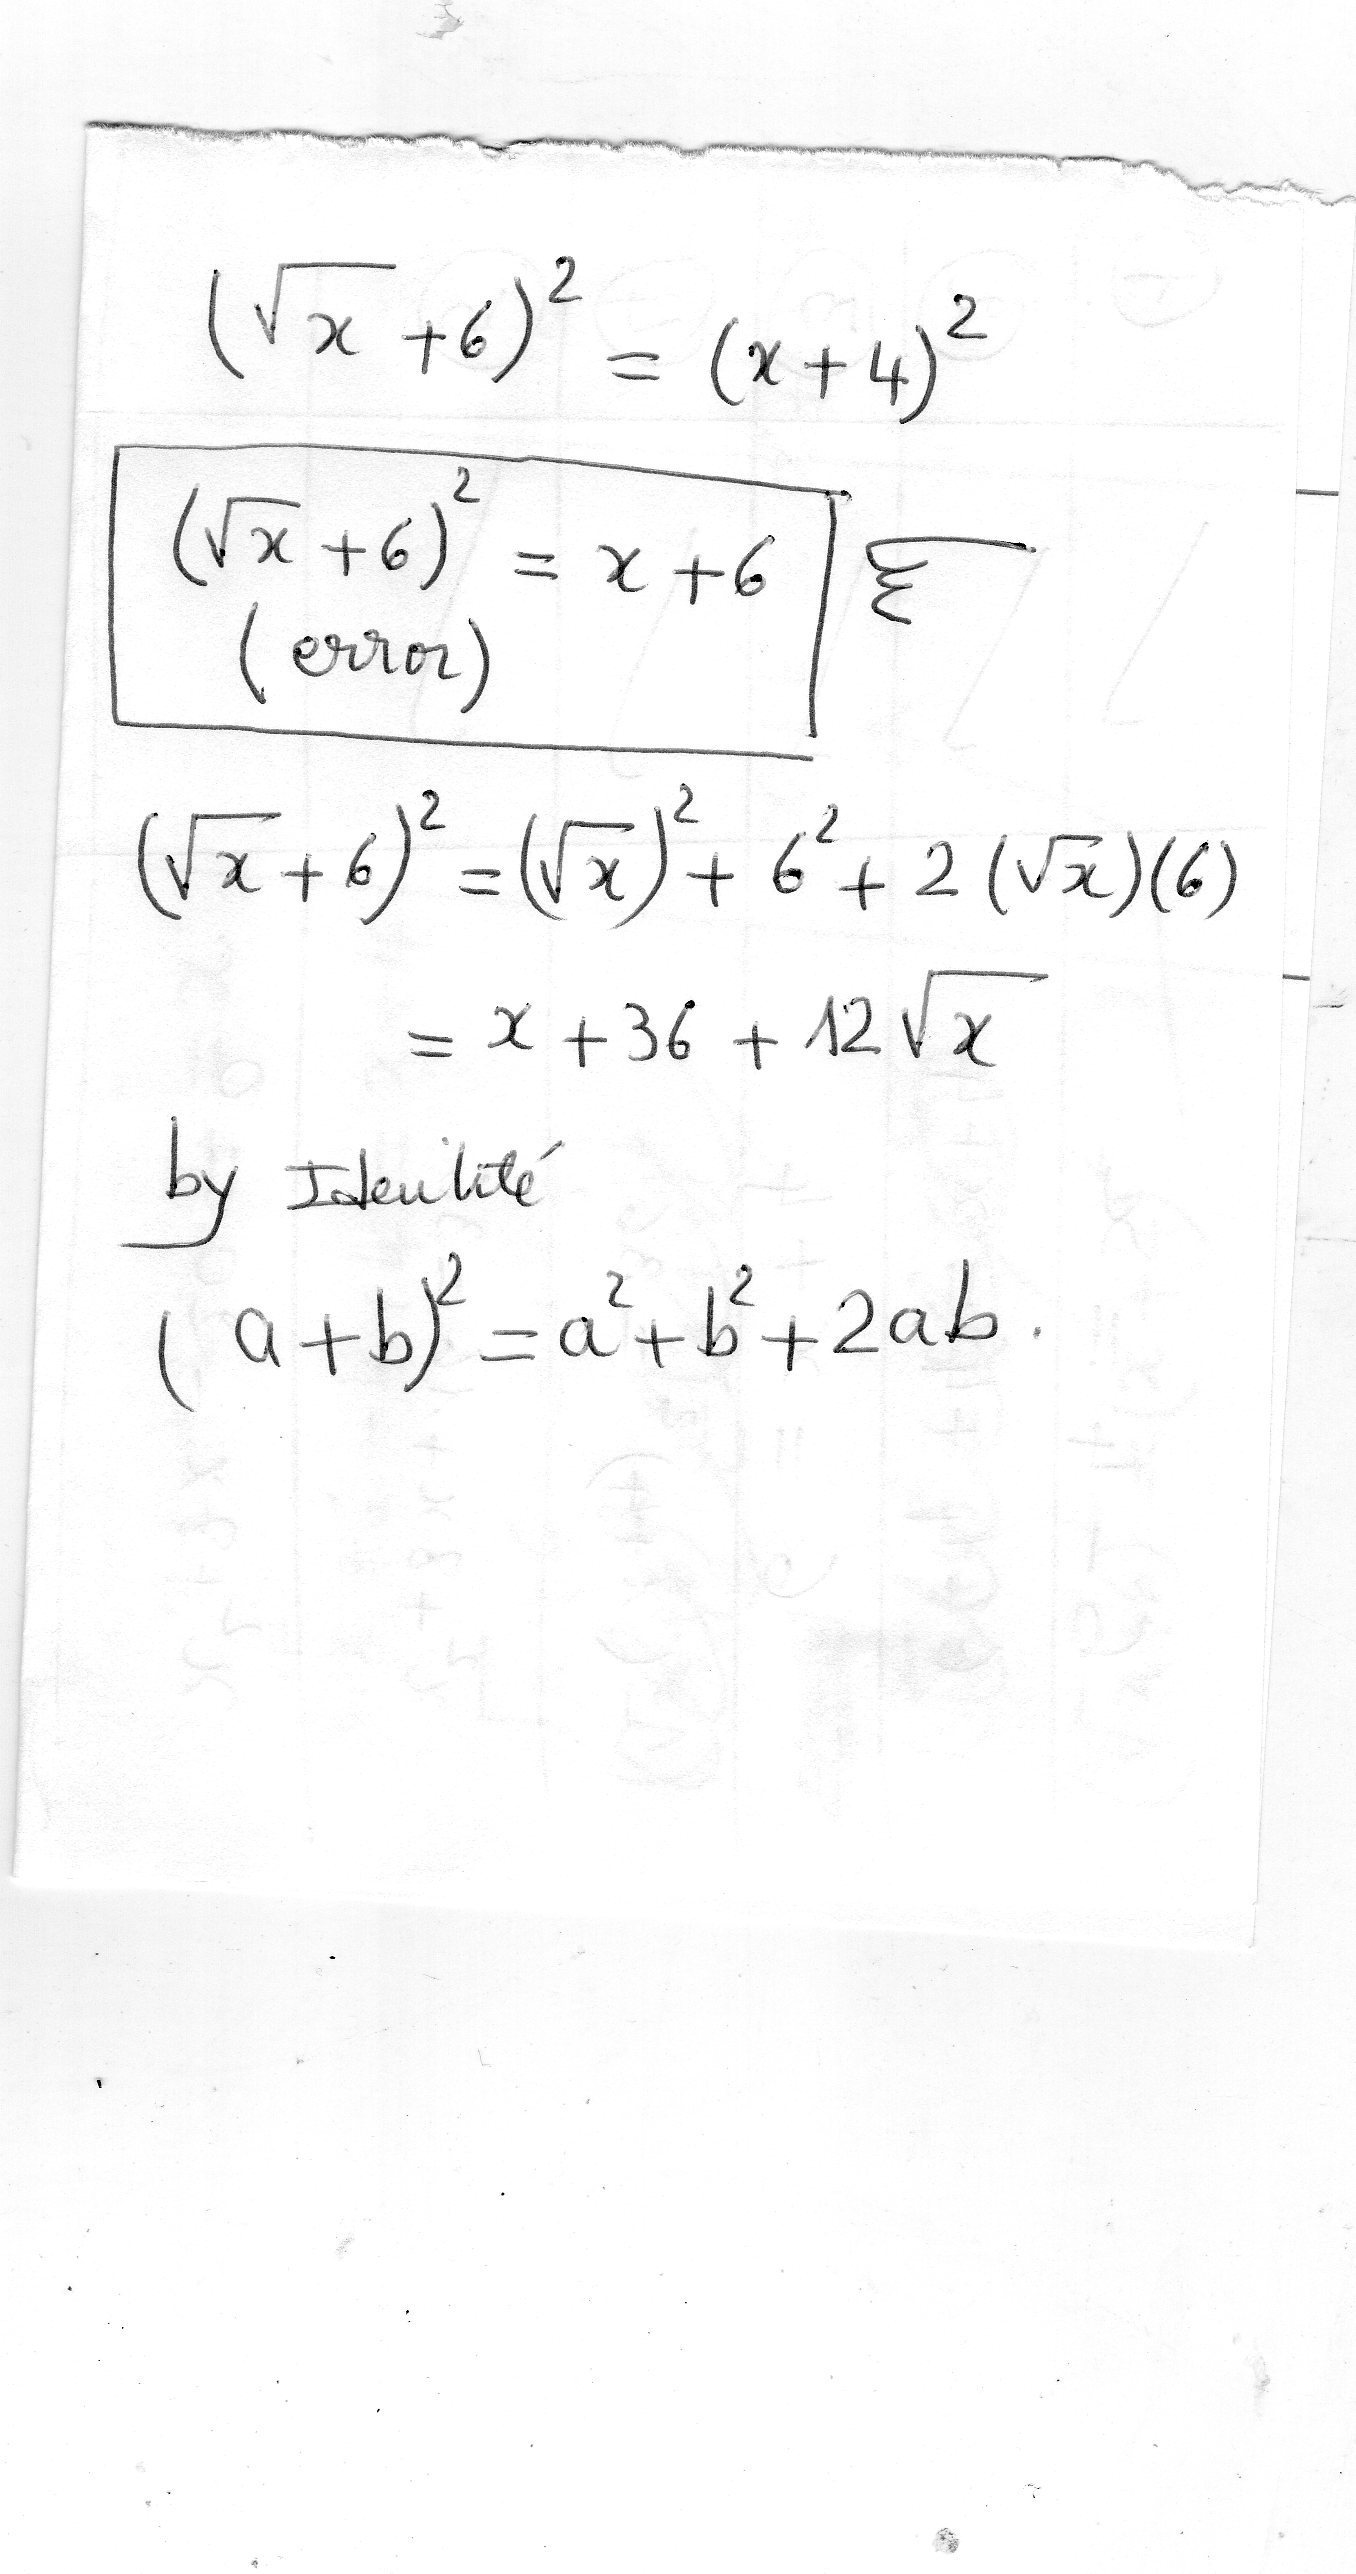 (√x + 6)² = (x + 4)²
(√x + 6)² = x + 6
(error)
(√x + 6)² = (√x)² + 6² + 2 (√x)(6)
= x + 36 + 12 √x
by Identité
(a + b)² = a² + b² + 2ab.